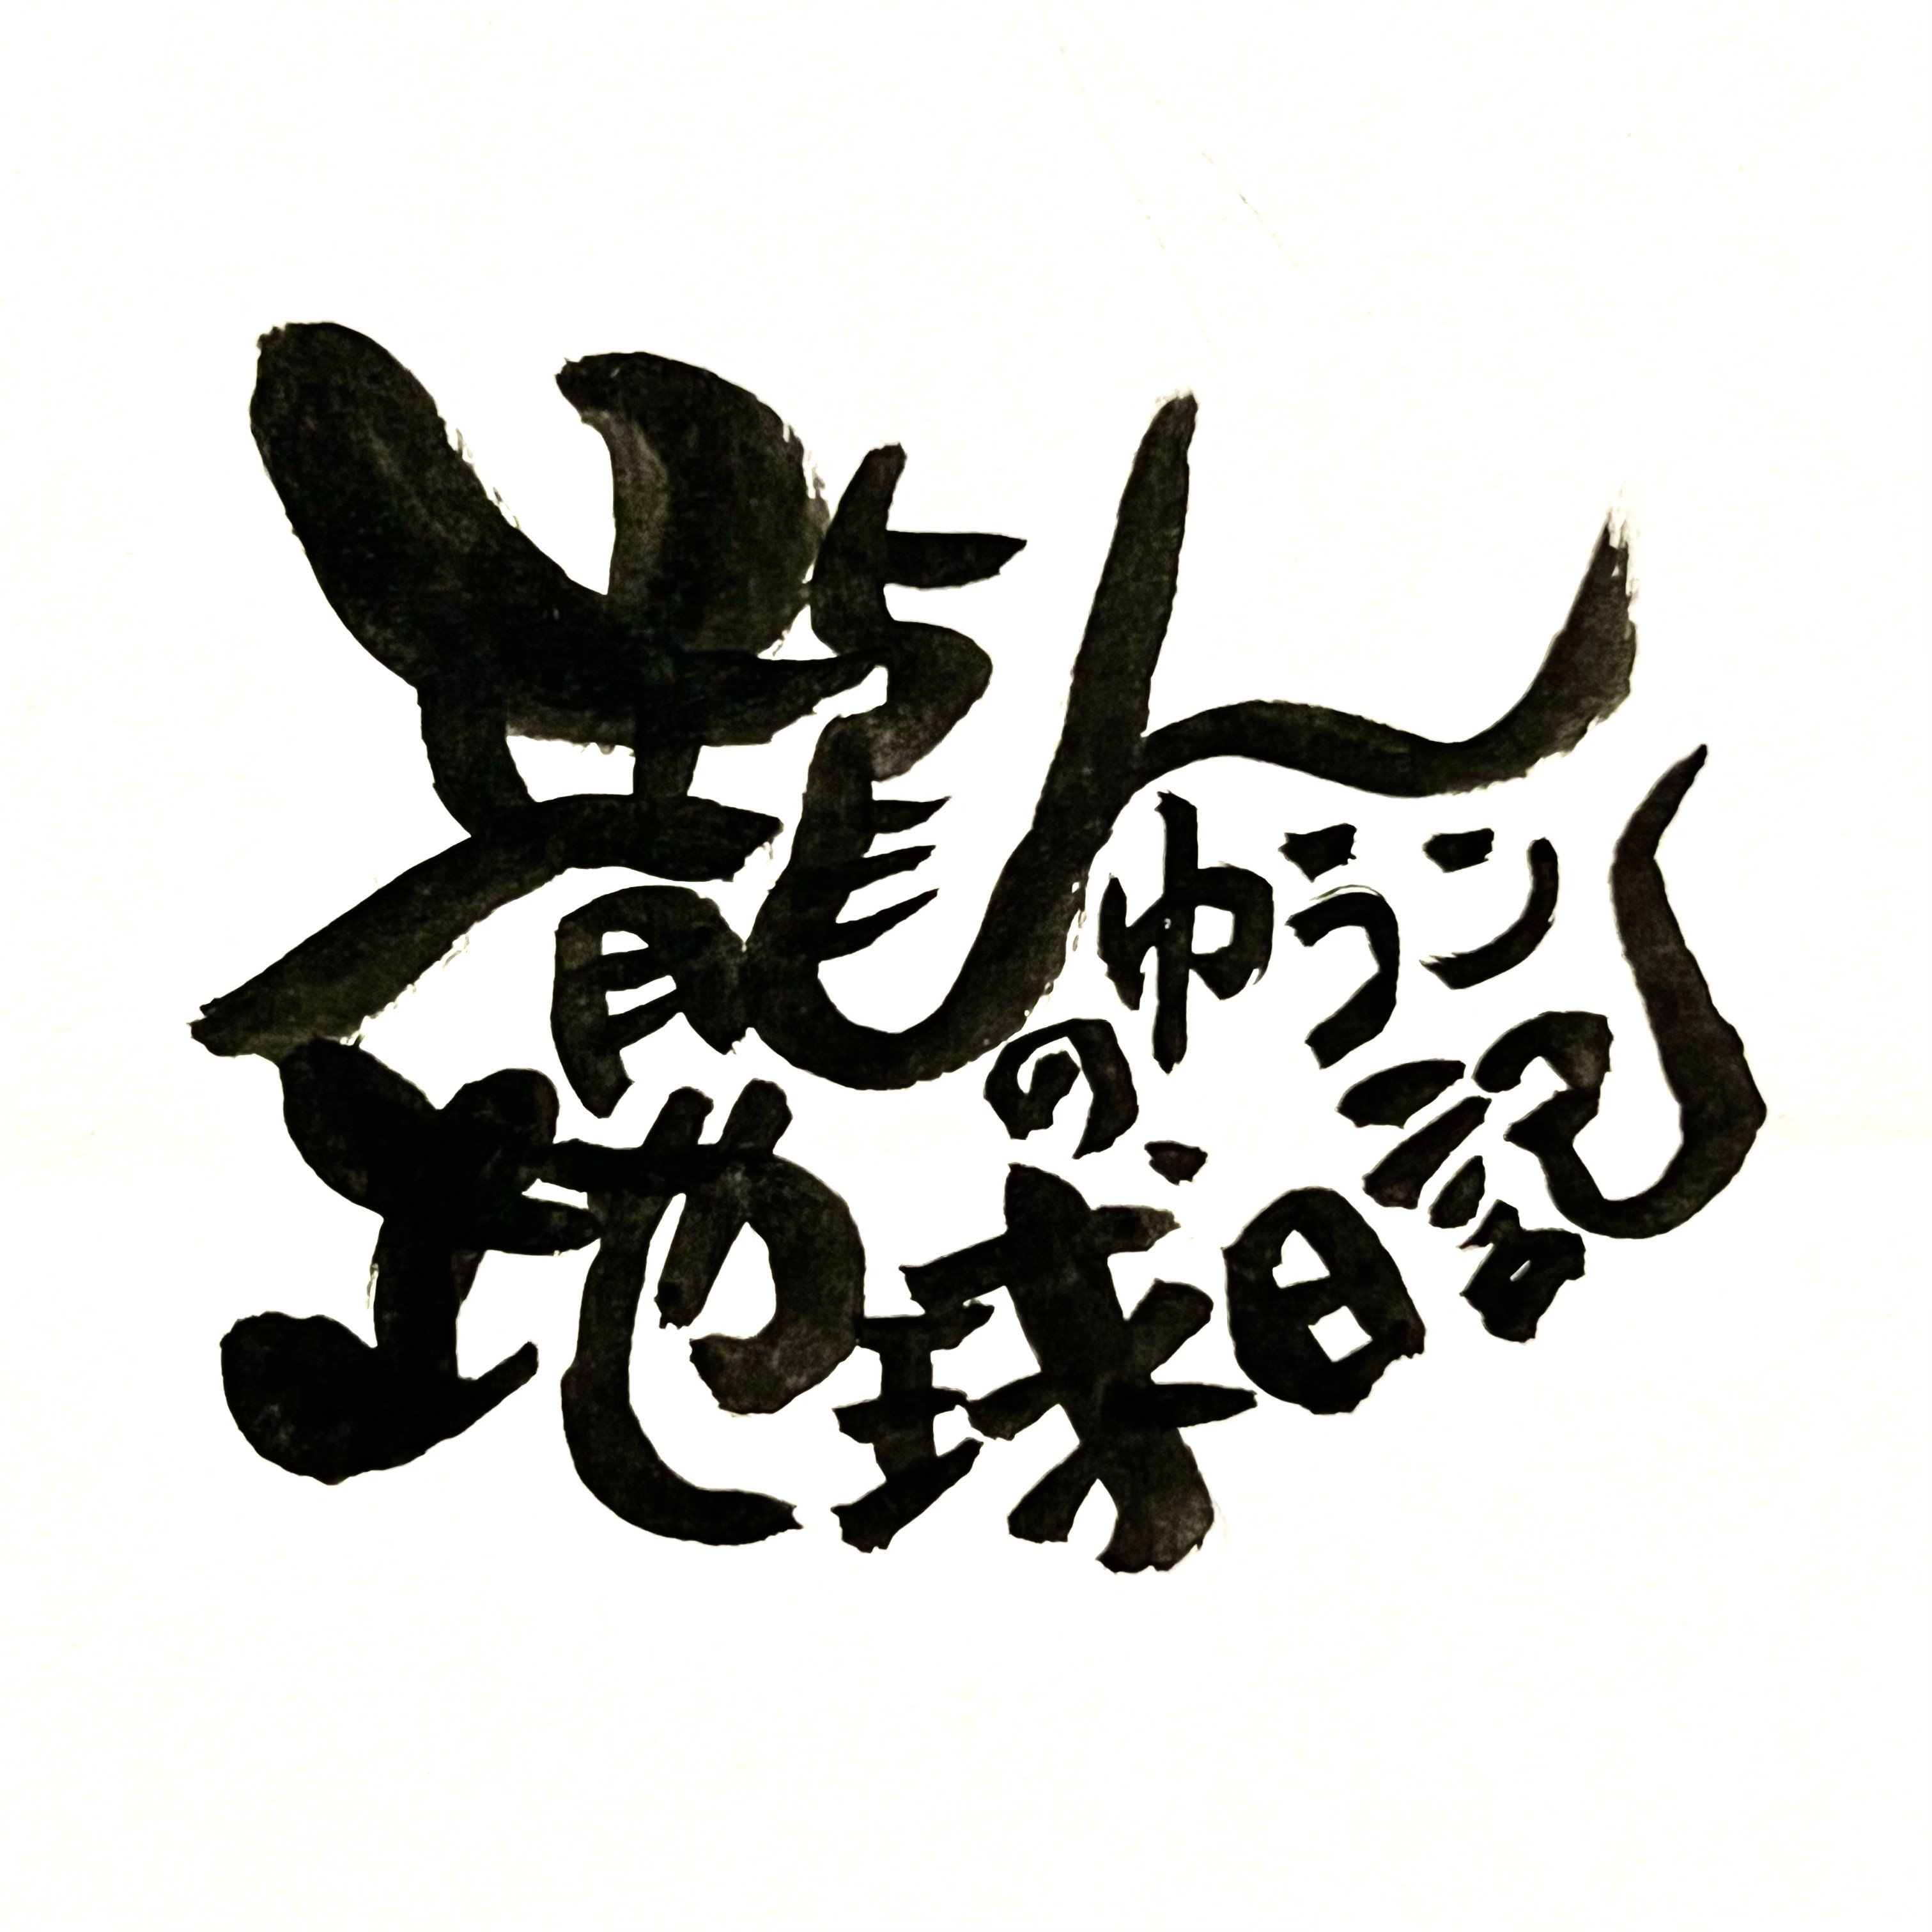 龍ゆうン
の
地球日記